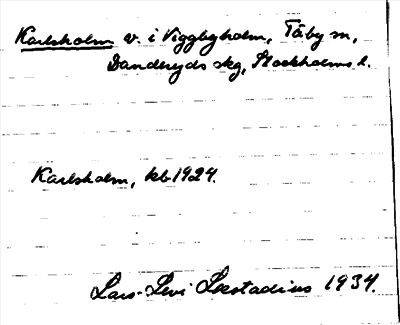 Karlsholm v. i Viggbyholm, Täby sn,
Danderyds skg, Stockholms l.
Karlsholm, kb 1924.
Lars-Levi Læstadius 1934.